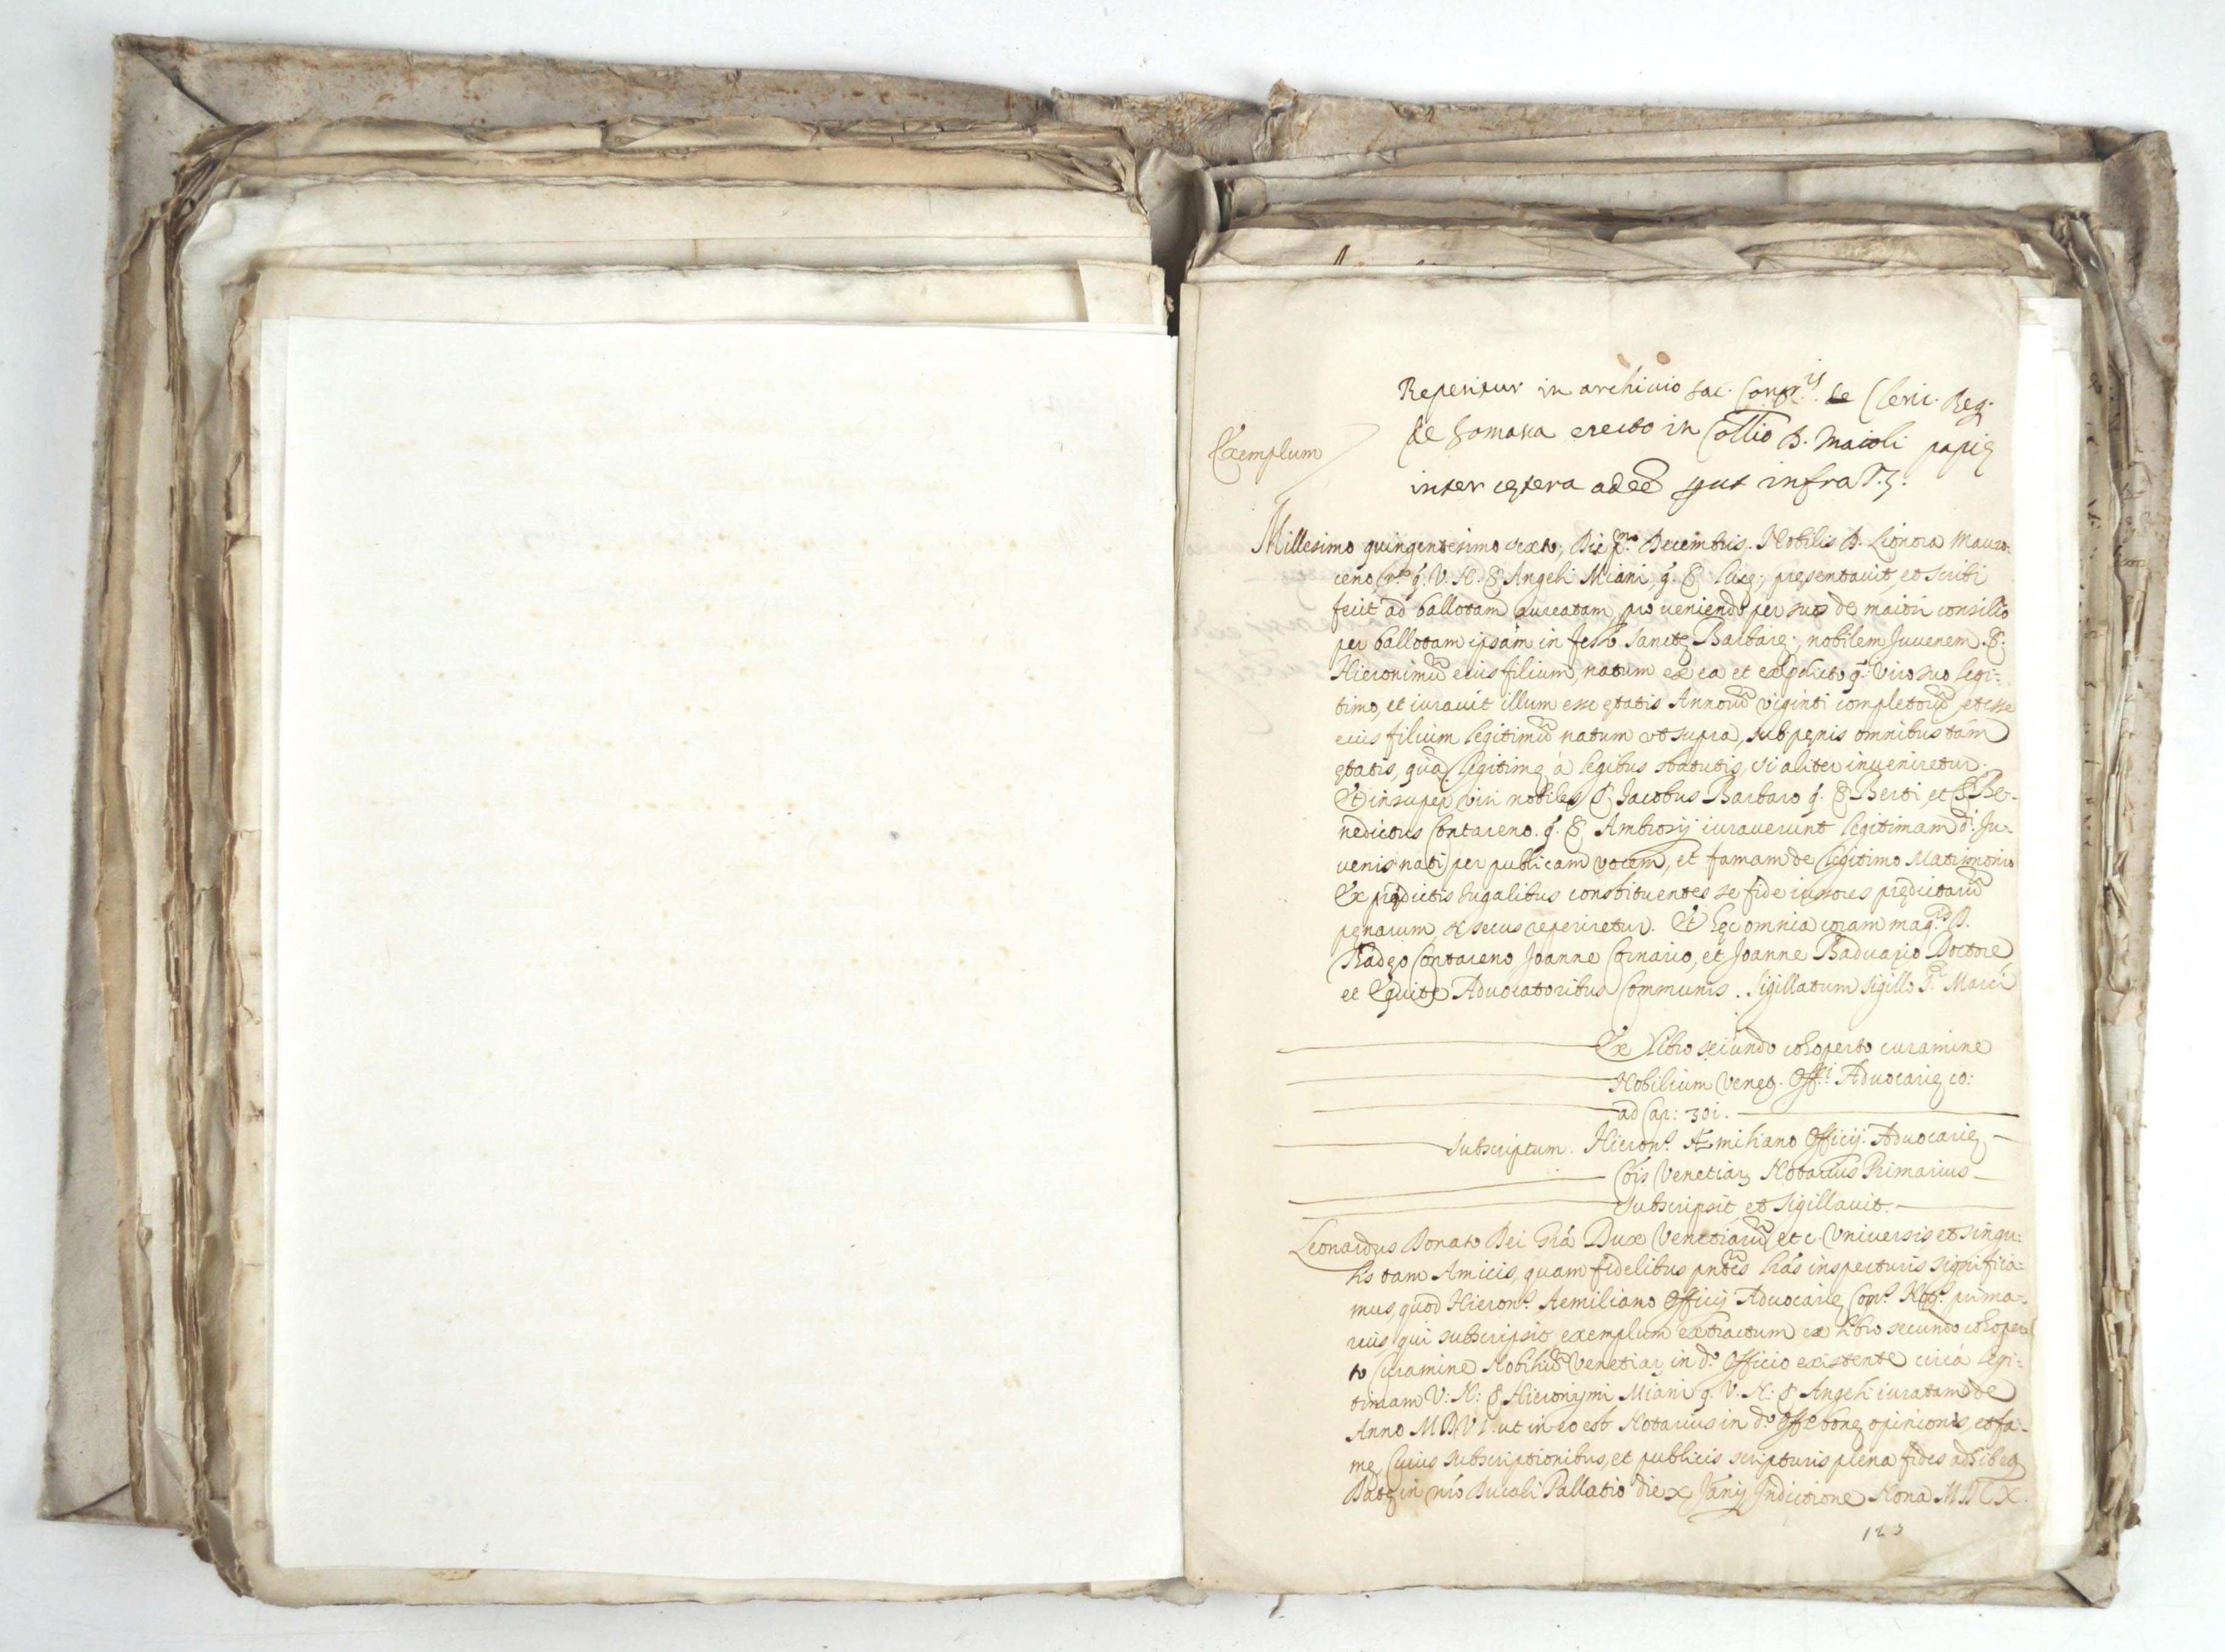 Reperitur in archivio sac. Congr.is de Cleri. Reg.
de Somasca erecto in Collio B. Maioli papię
Exemplum
inter cętera adeē put infra
Millesimo quingentesimo sexto, Die p.mo Decembris. Nobilis D. Lionora Mauro-
ceno r.ta q. V. N. S Angeli Miani, q. S Lucę, pręsentauit, et scribi
fecit ad ballotam aureatam pro ueniendo per suos de maiori consilio
per ballotam ipsam in festo Sanctę Barbarę, nobilem Juuenem S.
Hieronimū eius filium, natum ex ea et exp̄dicto q. Viro suo legi-
timo, et iurauit illum esse ętatis Annorū viginti completorū, et esse
eius filium legitimū natum vt supra, sub pęnis omnibus tām
ętatis, quā legitimę à legibus statutis, si aliter inueniretur.
Et insuper viri nobiles S Jacobus Barbaro q. S Berti, et S Be-
nedictus Contareno. q. S Ambrosij iurauerunt legitimam d.i Ju-
uenis nati per publicam vocem, et famam de legitimo Matrimonio
Ex prędictis Iugalibus constituentes se fide iussores prędictarū
pęnarum, si secus reperiretur. Et hęc omnia coram mag.cis D.
Tadęo Contareno Joanne Cornario, et Joanne Baduario Doctore
et Equite Aduocatoribus Communis. Sigillatum Sigillo S. Marci
Ex libro secundo cohoperto curamine
Nobilium Venet. Off.i Aduocarię co:
ad Car: 301.
Subscriptum. Hieron.s Æmiliano Officij Aduocarię
Cōis Venetiar Notarius Primarius
Subscripsit, et Sigillauit.
Leonardus Donato Dei Grā Dux Venetiarū etc. Vniuersis, et singu-
lis tam Amicis, quam fidelibus pntēs hās inspecturis significa-
mus, quod Hieron.s Aemiliano Officij Aduocarię Com.s Not.s prima-
rius, qui subscripsit exemplum extractum ex libro secundo cohoper-
to Curamine Nobiliū Venetiar in d.o Officio existente circa legi-
timam V: N: S Hieronymi Miani q. V. N: S Angeli iuratam de
Anno MDVI. ut in eo est Notarius in d.o Off.o bonę opinionis, et fa-
mę, Cuius subscriptionibus, et publicis scripturis plena fides adhibeą
Datę in nrō Ducali Pallatio die X Janij Indictione Nona MDCX.
123